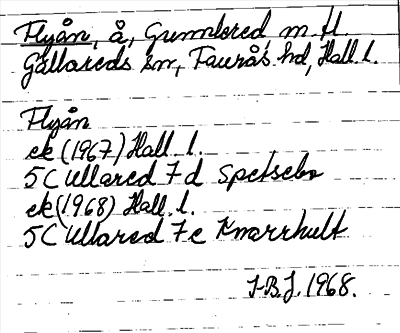 Flyån, å, Gunnlered m. fl.
Gällareds sn, Faurås hd, Hall. l.
Flyån
ek (1967) Hall. l.
5C Ullared 7d Spetsebo
ek (1968) Hall. l.
5C Ullared 7e Knarrhult
J.B.J. 1968.